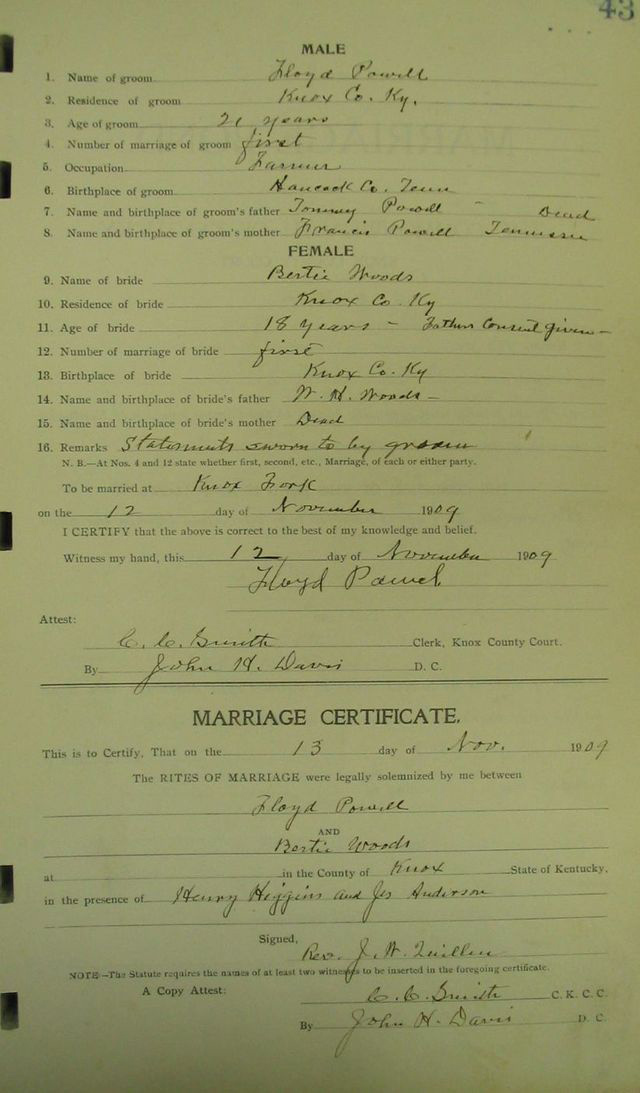 43
MALE
1. Name of groom Floyd Powell
2. Residence of groom Knox Co. Ky.
3. Age of groom 21 years
4. Number of marriage of groom first
5. Occupation Farmer
6. Birthplace of groom Hancock Co. Tenn
7. Name and birthplace of groom's father Tommy Powell - Dead
8. Name and birthplace of groom's mother Francis Powell Tennessee
FEMALE
9. Name of bride Bertie Woods
10. Residence of bride Knox Co. Ky
11. Age of bride 18 years - Fathers Consent given -
12. Number of marriage of bride first
13. Birthplace of bride Knox Co. Ky
14. Name and birthplace of bride's father W. H. Woods -
15. Name and birthplace of bride's mother Dead
16. Remarks Statements sworn to by groom
N. B.—At Nos. 4 and 12 state whether first, second, etc., Marriage, of each or either party.
To be married at Knox Fork
on the 12 day of November 1909
I CERTIFY that the above is correct to the best of my knowledge and belief.
Witness my hand, this 12 day of November 1909
Floyd Powel
Attest:
C. C. Smith Clerk, Knox County Court.
By John H. Davis D. C.
MARRIAGE CERTIFICATE.
This is to Certify, That on the 13 day of Nov. 1909
The RITES OF MARRIAGE were legally solemnized by me between
Floyd Powell
AND
Bertie Woods
at in the County of Knox State of Kentucky,
in the presence of Henry Higgins and Jes Anderson
Signed, Rev. J. W.
NOTE—The Statute requires the names of at least two witnesses to be inserted in the foregoing certificate.
A Copy Attest: C. C. Smith C. K. C. C.
By John H. Davis D. C.